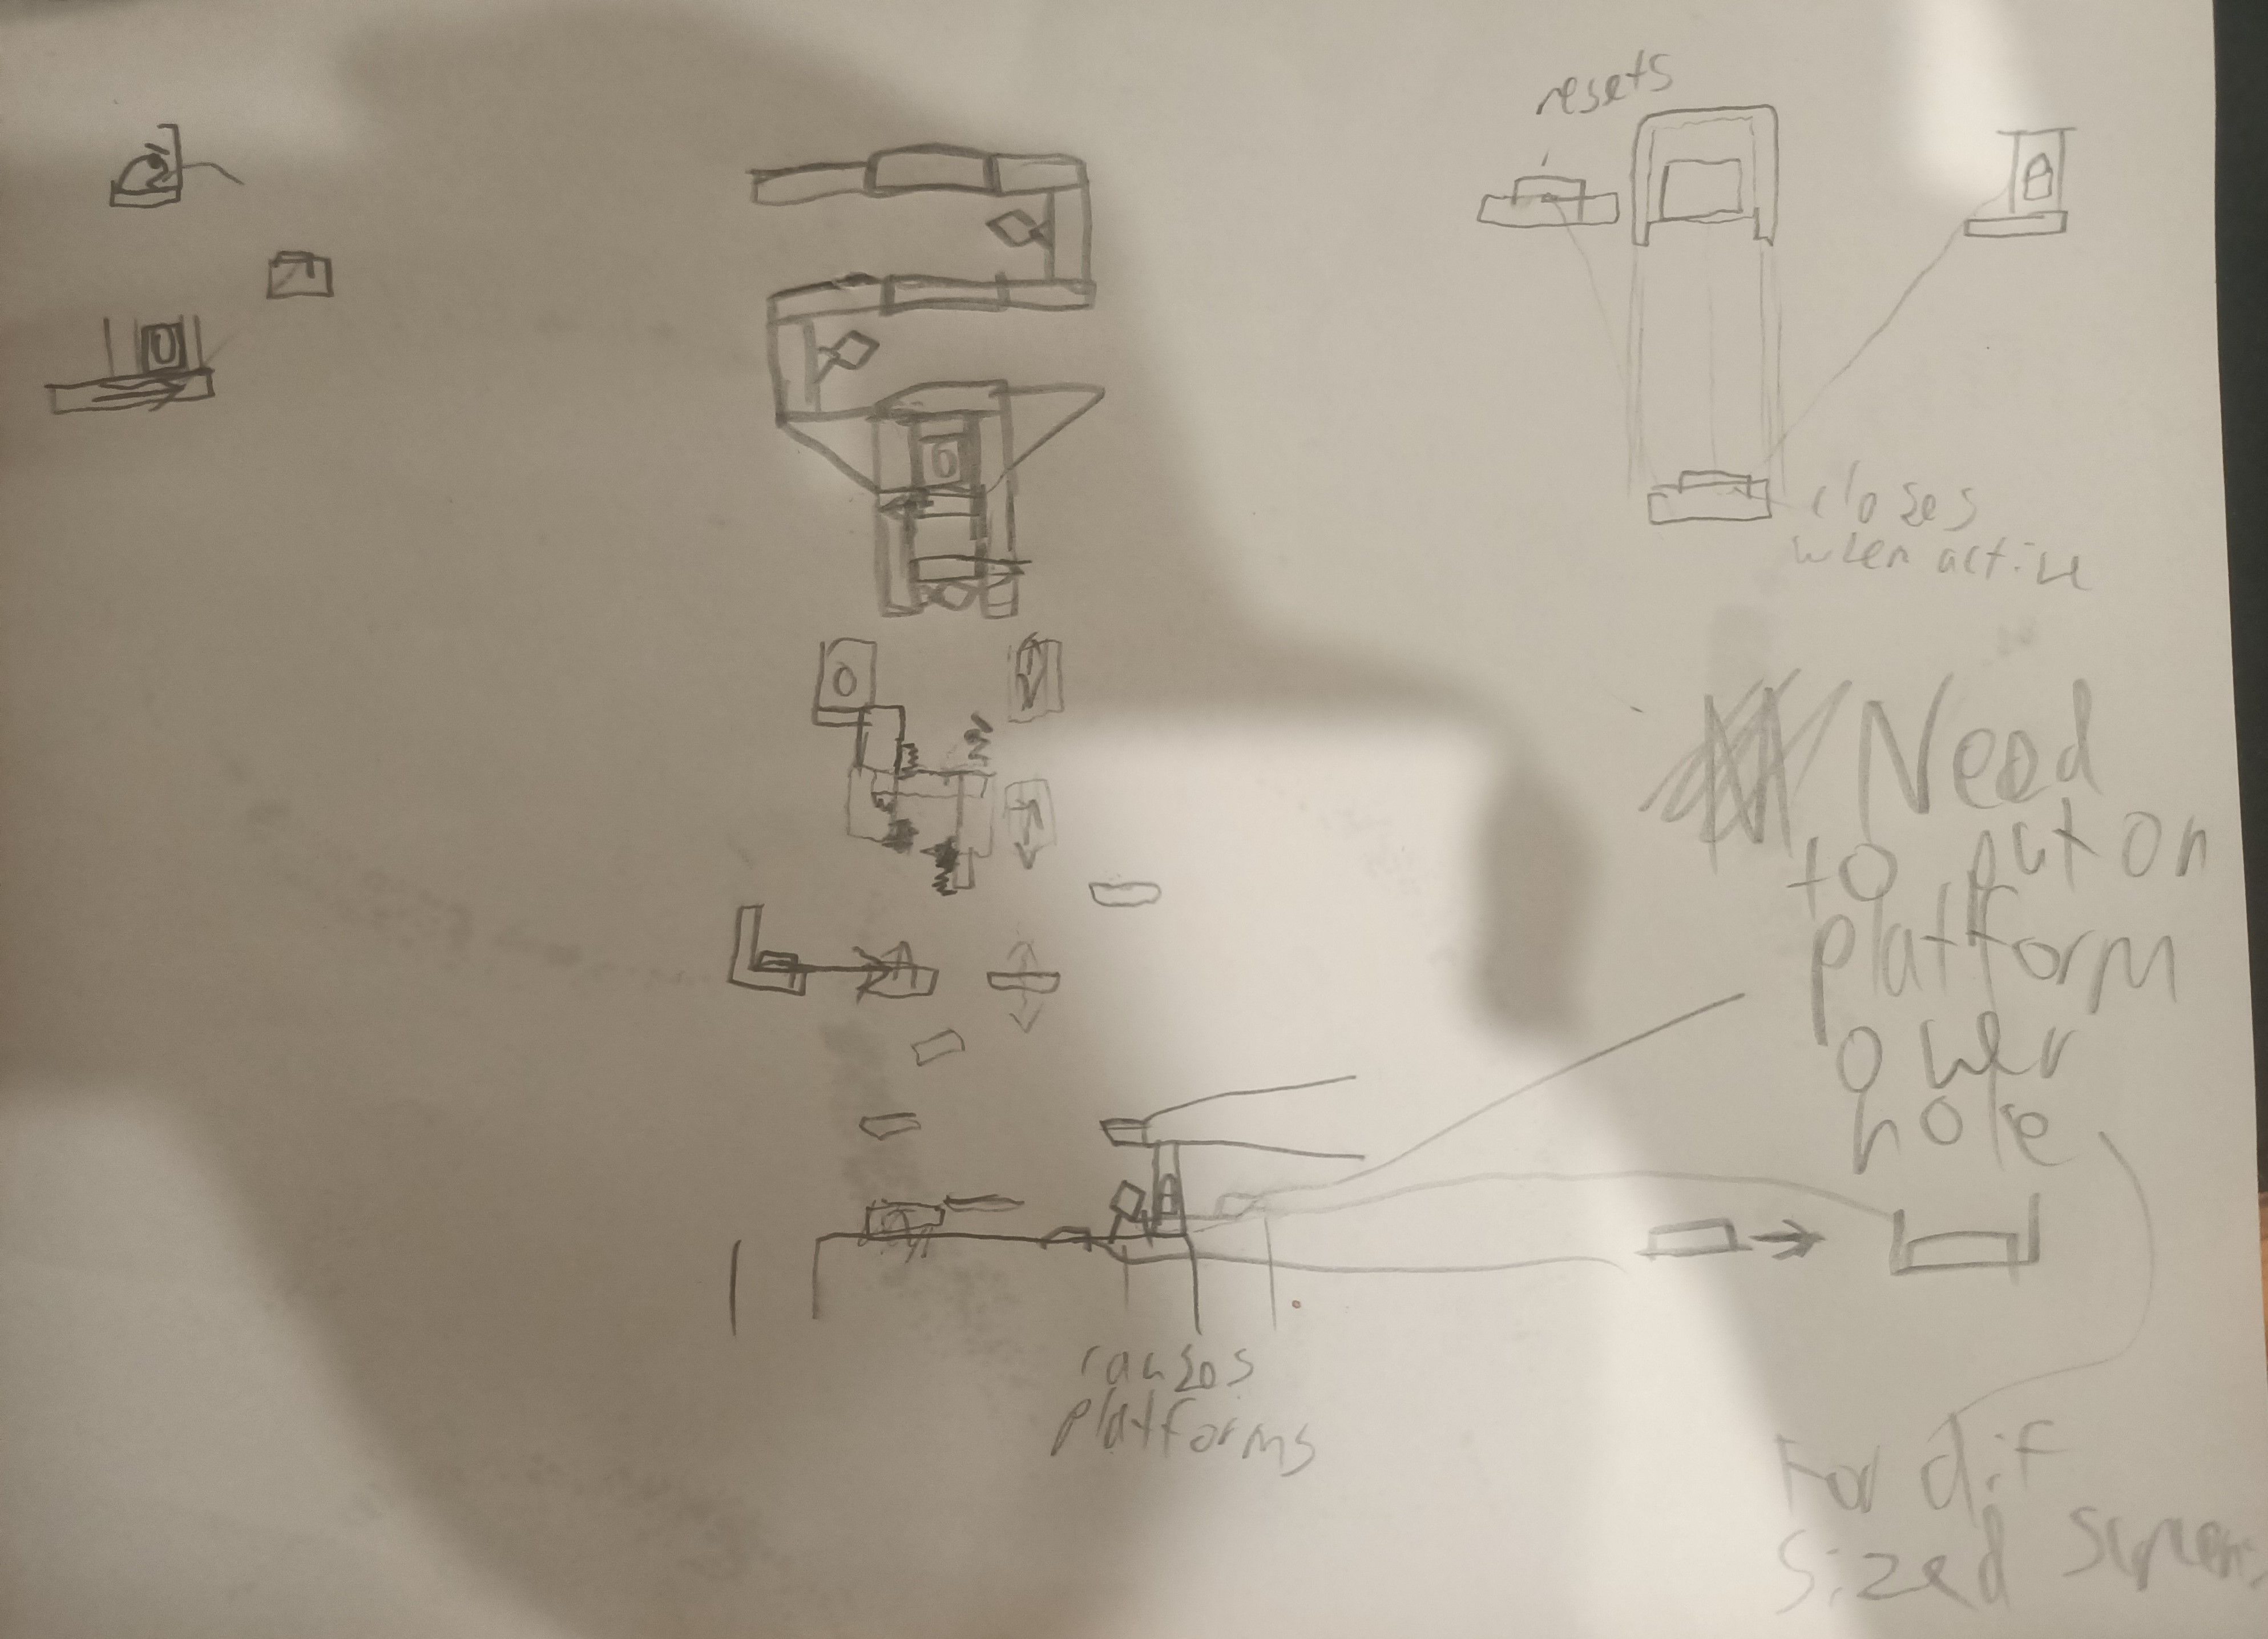 resets
closes
when active
Need
to put on
platform
over
hole
platforms
For dif
sized screens